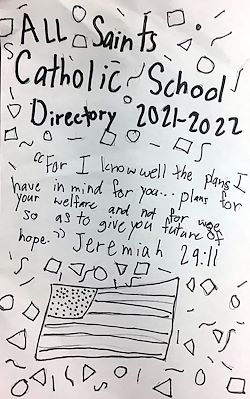 ALL Saints
Catholic School
Directory 2021-2022
"For I know well the plans I
have in mind for you... plans for
your welfare and not for woe
so as to give you future of
hope." Jeremiah 29:11